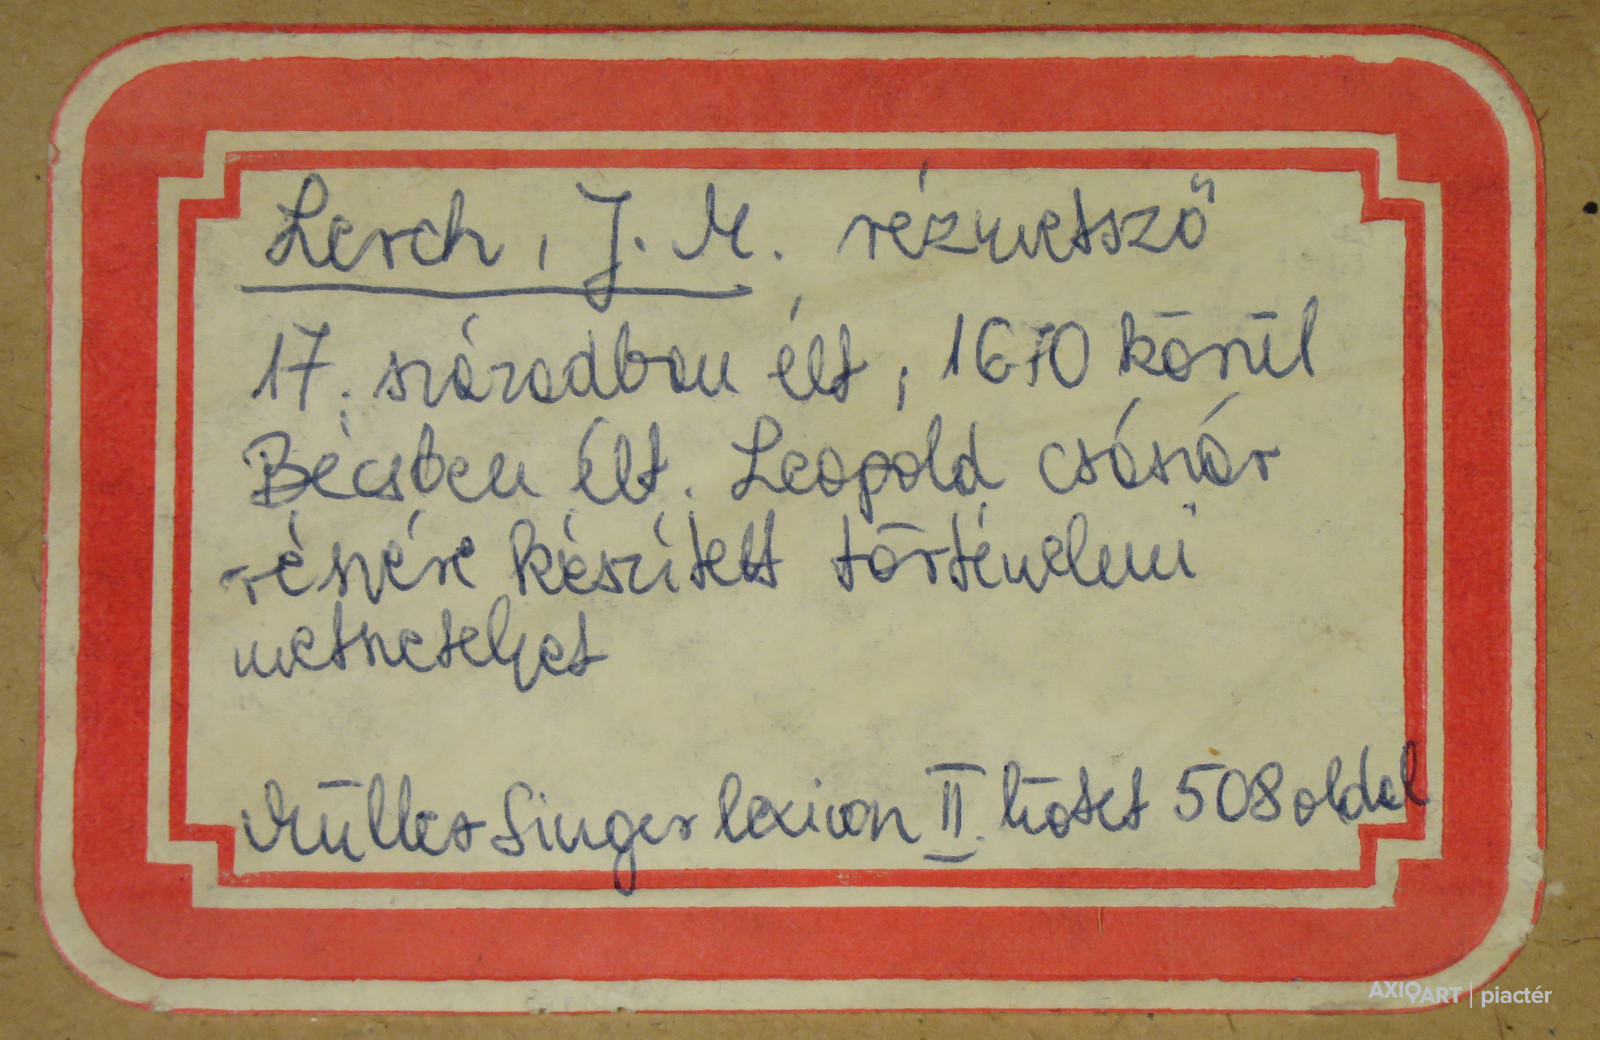 Lerch, J. M. rézmetsző
17. században élt, 1670 körül
Bécsben élt. Leopold császár
részére készített történelmi
metszeteket
Müller Singer lexicon II. kötet 508 oldal
AXIOART | piactér